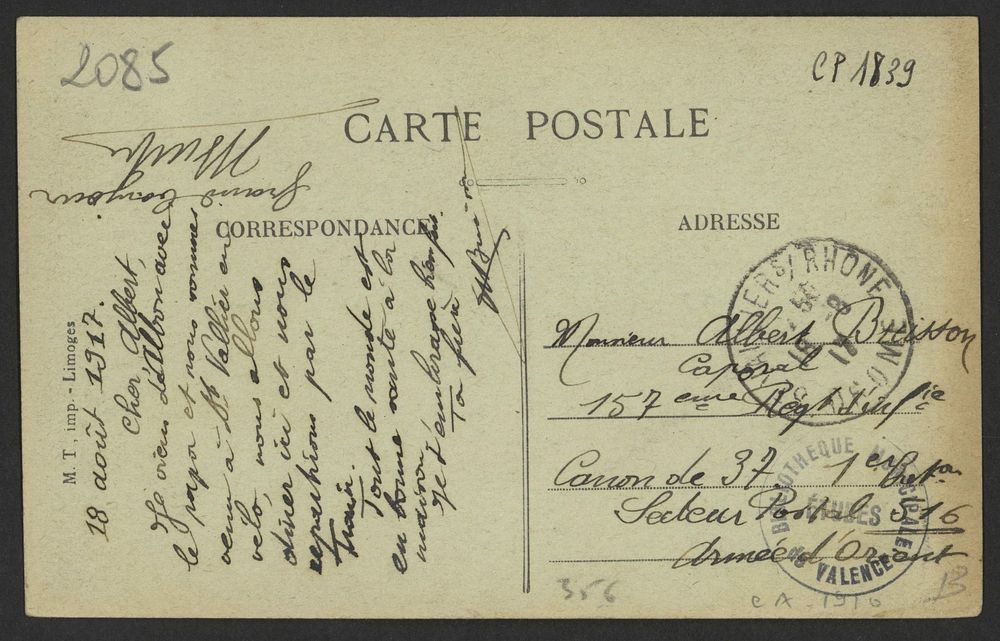 2085
CP 1839
CARTE POSTALE
CORRESPONDANCE
ADRESSE
M. T., imp. - Limoges
18 août 1917.
Cher Albert,
Je viens d'Albon avec
le papa et nous sommes
venu à St Vallier en
vélo nous allons
dîner ici et nous
repartirons par le
train.
Tout le monde est
en bonne santé à la
maison
Je t'embrasse bien fort
Ta frère
Grand bonjour
Monsieur Albert Buisson
Caporal
157eme Régt d'Inf ie
Canon de 37 1er
Secteur Postal 516
Armée d'Orient
S/RHONE
18 -8
17
BIBLIOTHEQUE MUNICIPALE
ÉTUDES
DE VALENCE
356
CA-1916
B